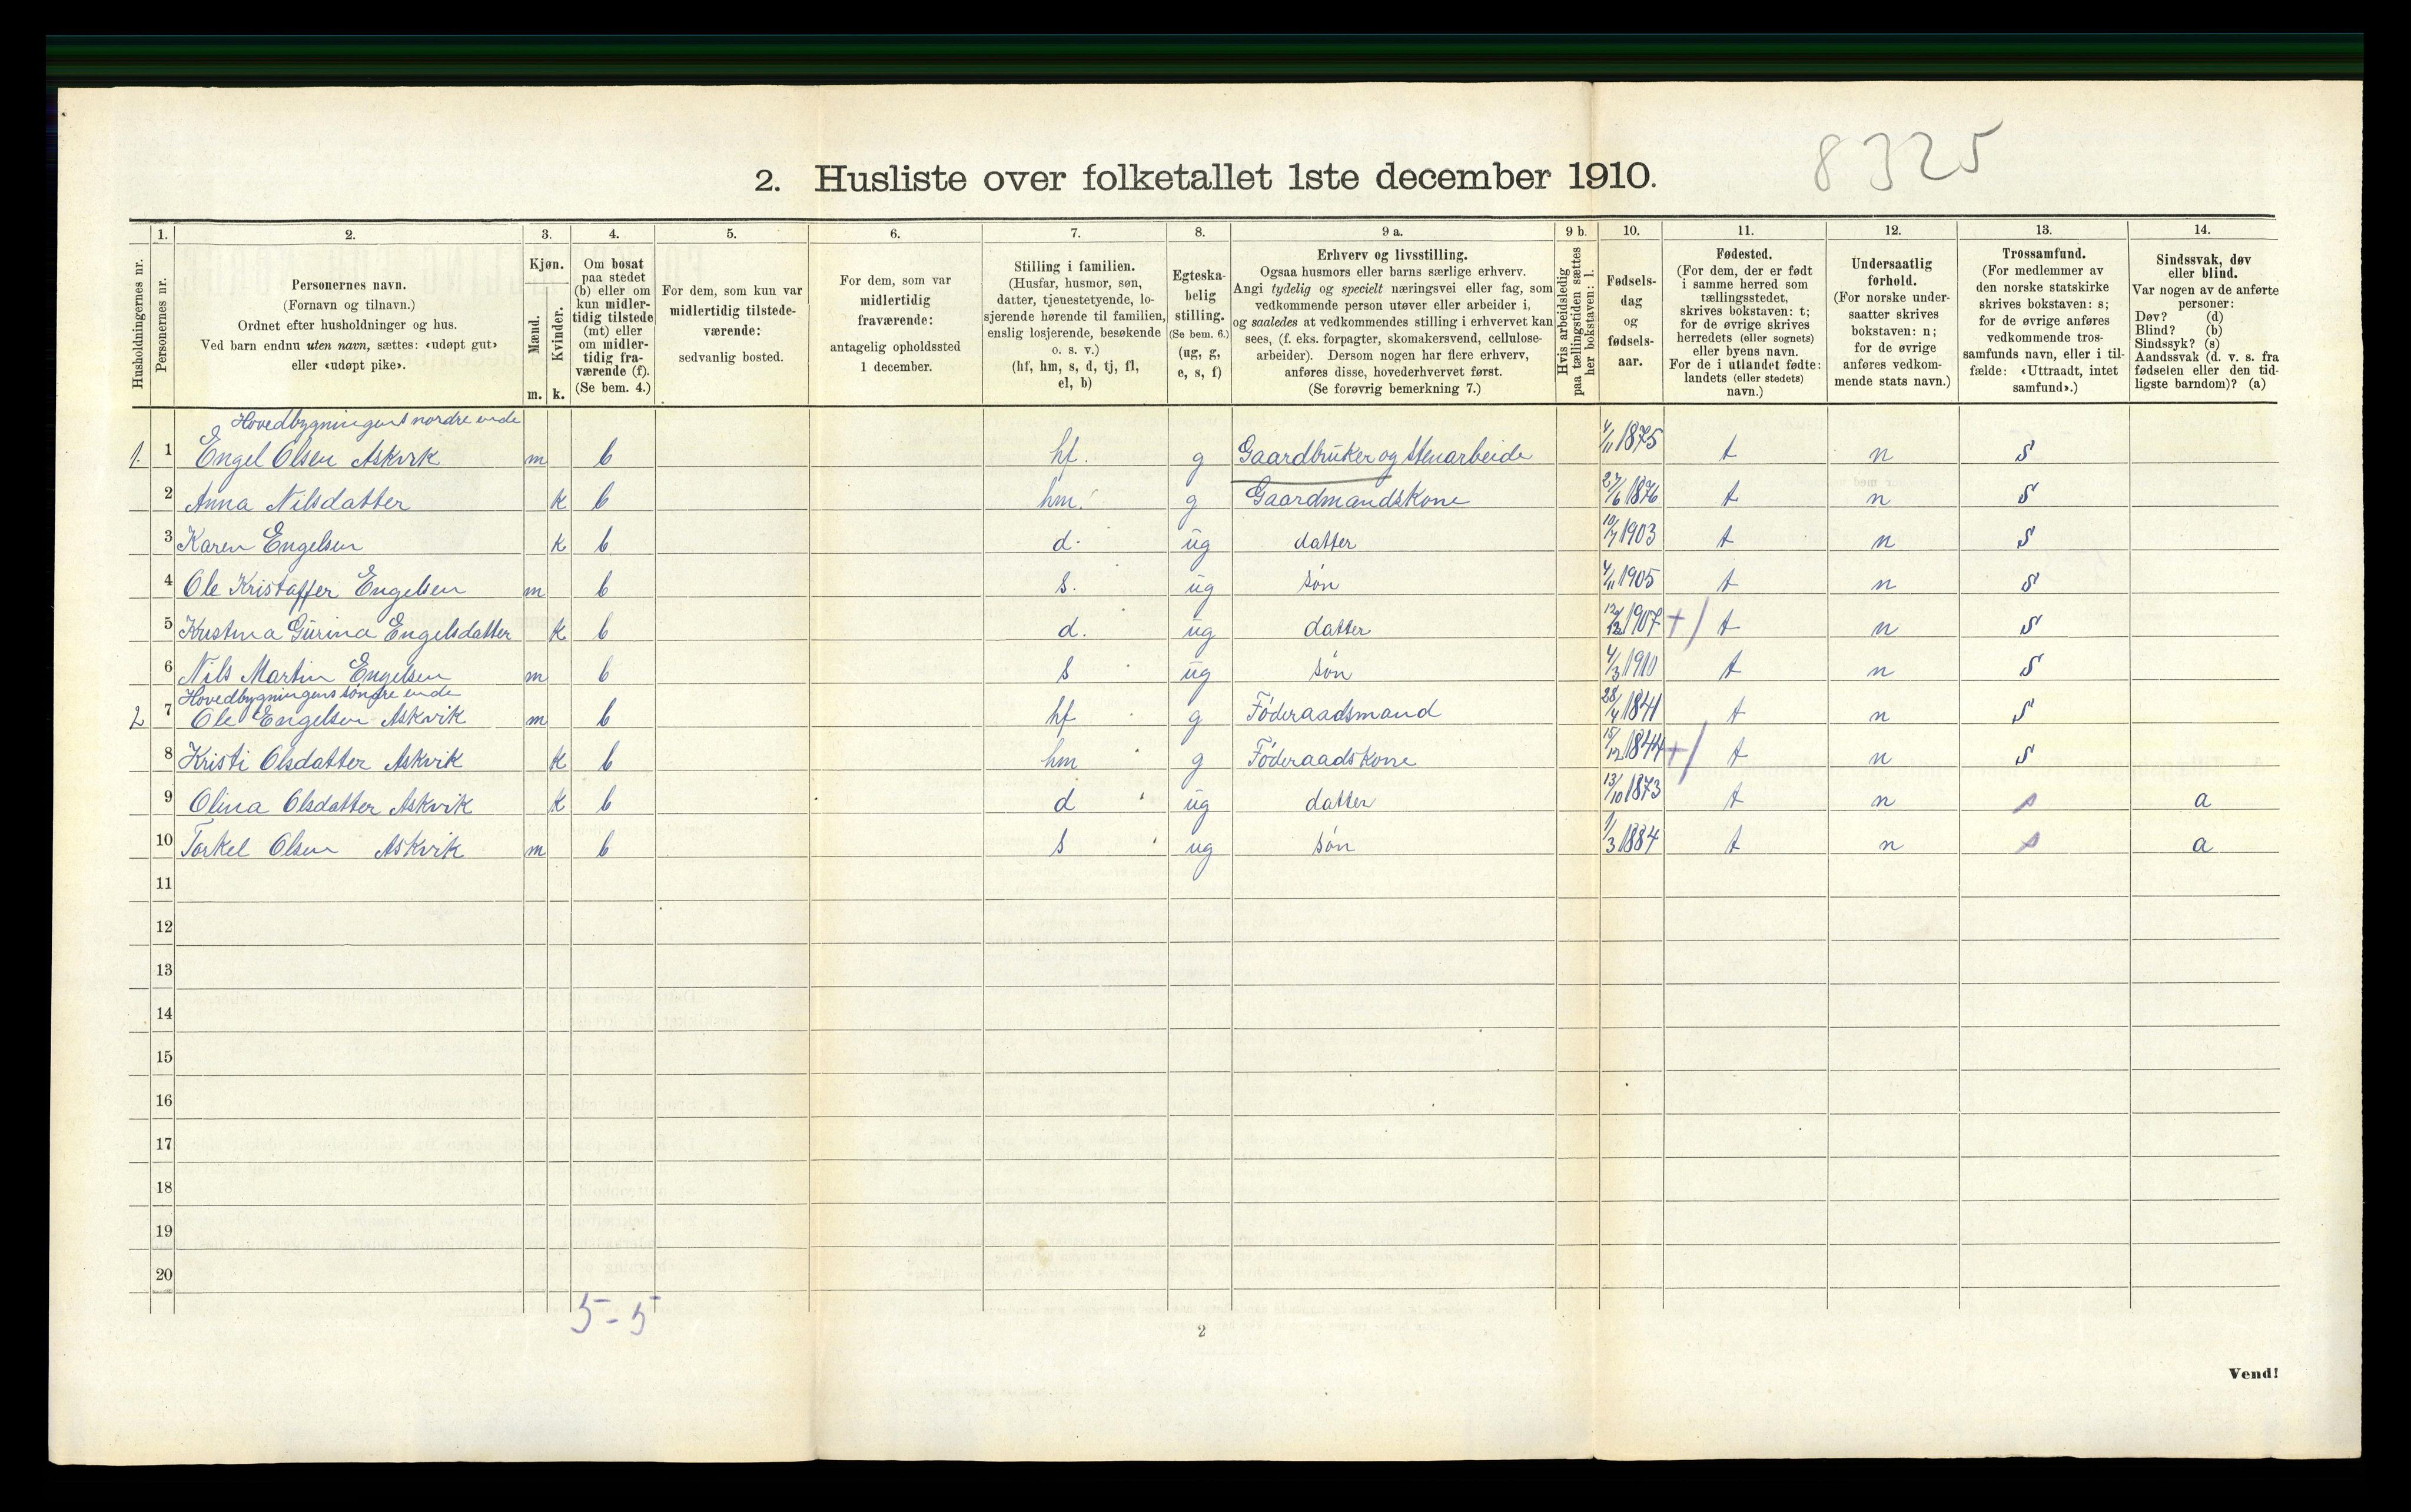 8325
2. Husliste over folketallet 1ste december 1910.
Husholdningernes nr.
1. Personernes nr.
2. Personernes navn.
(Fornavn og tilnavn.)
Ordnet efter husholdninger og hus.
Ved barn endnu uten navn, sættes: «udøpt gut»
eller «udøpt pike».
3. Kjøn.
Mænd. m.
Kvinder. k.
4. Om bosat
paa stedet
(b) eller om
kun midler-
tidig tilstede
(mt) eller
om midler-
tidig fra-
værende (f).
(Se bem. 4.)
5. For dem, som kun var
midlertidig tilstede-
værende:
sedvanlig bosted.
6. For dem, som var
midlertidig
fraværende:
antagelig opholdssted
1 december.
7. Stilling i familien.
(Husfar, husmor, søn,
datter, tjenestetyende, lo-
sjerende hørende til familien,
enslig losjerende, besøkende
o. s. v.)
(hf, hm, s, d, tj, fl,
el, b)
8. Egteska-
belig
stilling.
(Se bem. 6.)
(ug, g,
e, s, f)
9 a. Erhverv og livsstilling.
Ogsaa husmors eller barns særlige erhverv.
Angi tydelig og specielt næringsvei eller fag, som
vedkommende person utøver eller arbeider i,
og saaledes at vedkommendes stilling i erhvervet kan
sees, (f. eks. forpagter, skomakersvend, cellulose-
arbeider). Dersom nogen har flere erhverv,
anføres disse, hovederhvervet først.
(Se forøvrig bemerkning 7.)
9 b. Hvis arbeidsledig
paa tællingstiden sættes
her bokstaven: l.
10. Fødsels-
dag
og
fødsels-
aar.
11. Fødested.
(For dem, der er født
i samme herred som
tællingsstedet,
skrives bokstaven: t;
for de øvrige skrives
herredets (eller sognets)
eller byens navn.
For de i utlandet fødte:
landets (eller stedets)
navn.)
12. Undersaatlig
forhold.
(For norske under-
saatter skrives
bokstaven: n;
for de øvrige
anføres vedkom-
mende stats navn.)
13. Trossamfund.
(For medlemmer av
den norske statskirke
skrives bokstaven: s;
for de øvrige anføres
vedkommende tros-
samfunds navn, eller i til-
fælde: «Uttraadt, intet
samfund».)
14. Sindssvak, døv
eller blind.
Var nogen av de anførte
personer:
Døv? (d)
Blind? (b)
Sindssyk? (s)
Aandssvak (d. v. s. fra
fødselen eller den tid-
ligste barndom)? (a)
Hovedbygningens nordre ende
1. 1 Engel Olsen Askvik m b hf. g Gaardbruker og Stenarbeide 4/11 1875 t n s
2 Anna Nilsdatter k b hm. g Gaardmandskone 27/6 1876 t n s
3 Karen Engelsen k b d. ug datter 10/7 1903 t n s
4 Ole Kristaffer Engelsen m b s. ug søn 4/11 1905 t n s
5 Kristina Gurina Engelsdatter k b d. ug datter 12/12 1907 +/ t n s
6 Nils Martin Engelsen m b s ug søn 4/3 1910 t n s
Hovedbygningens søndre ende
2 7 Ole Engelsen Askvik m b hf g Føderaadsmand 28/4 1841 t n s
8 Kristi Olsdatter Askvik k b hm g Føderaadskone 15/12 1844 +/ t n s
9 Olina Olsdatter Askvik k b d ug datter 13/10 1873 t n s a
10 Torkel Olsen Askvik m b s ug søn 1/3 1884 t n s a
11
12
13
14
15
16
17
18
19
20
5-5
2
Vend!